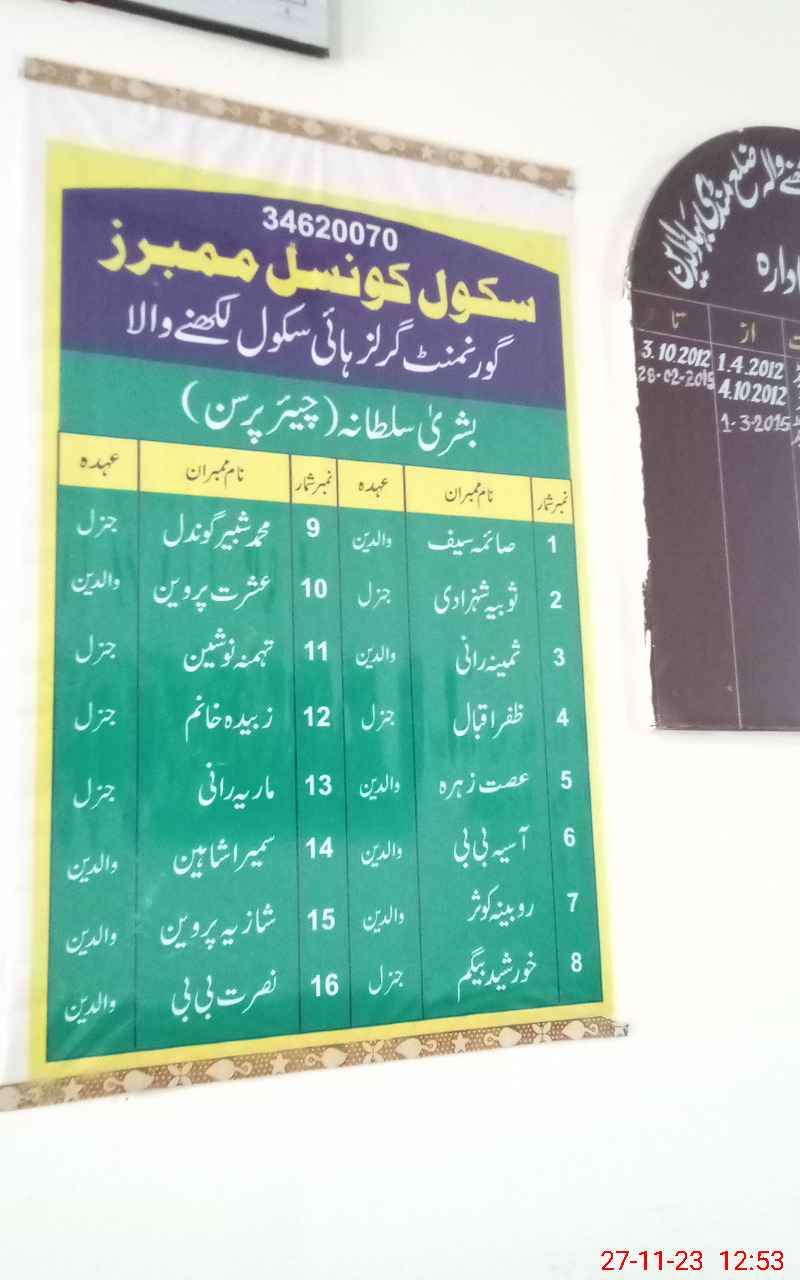 34620070
سکول کونسل ممبرز
گورنمنٹ گرلز ہائی سکول لکھنے والا
بشریٰ سلطانہ (چیئرپرسن)
نمبر شمار نام ممبران عہدہ نمبر شمار نام ممبران عہدہ
1 صائمہ سیف والدین 9 محمد شبیر گوندل جنرل
2 ثوبیہ شہزادی جنرل 10 عشرت پروین والدین
3 ثمینہ رانی والدین 11 تہمنہ نوشین جنرل
4 ظفر اقبال جنرل 12 زبیدہ خانم جنرل
5 عصت زہرہ والدین 13 ماریہ رانی جنرل
6 آسیہ بی بی والدین 14 سمیرا شاہین والدین
7 روبینہ کوثر والدین 15 شازیہ پروین والدین
8 خورشید بیگم جنرل 16 نصرت بی بی والدین
والہ ضلع منڈی بہاؤالدین
ادارہ
از تا
1.4.2012 3.10.2012
4.10.2012 28-02-2015
1-3-2015
27-11-23 12:53